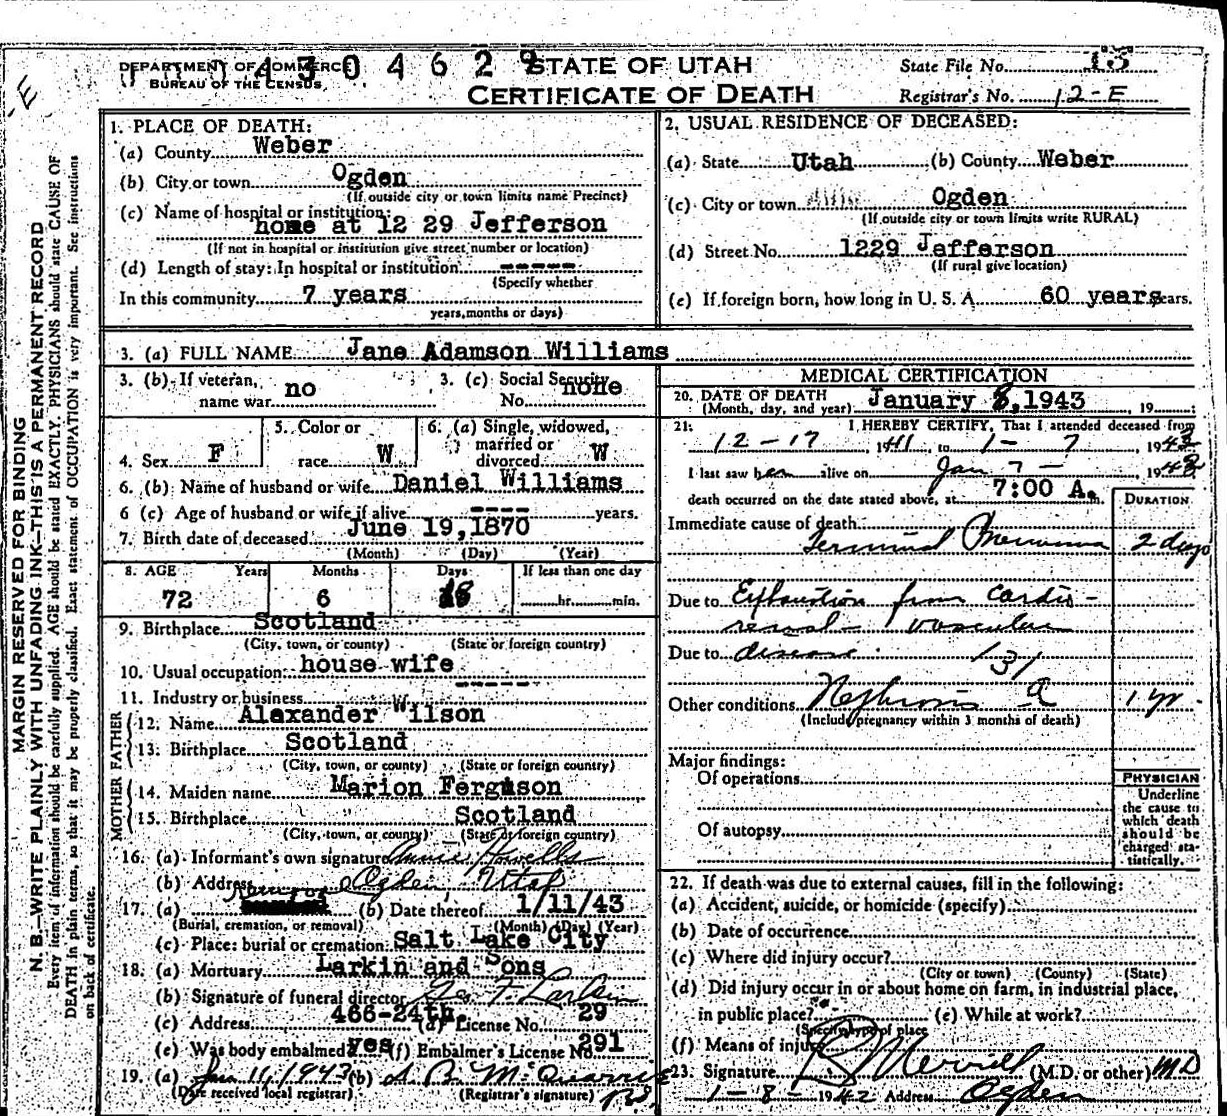 E
DEPARTMENT OF COMMERCE
BUREAU OF THE CENSUS
430 4 6 2 9
STATE OF UTAH
CERTIFICATE OF DEATH
State File No. 15
Registrar's No. 12-E
MARGIN RESERVED FOR BINDING
N. B.—WRITE PLAINLY WITH UNFADING INK—THIS IS A PERMANENT RECORD
Every item of information should be carefully supplied. AGE should be stated EXACTLY. PHYSICIANS should state CAUSE OF
DEATH in plain terms, so that it may be properly classified. Exact statement of OCCUPATION is very important. See instructions
on back of certificate.
1. PLACE OF DEATH:
(a) County Weber
(b) City or town Ogden
(If outside city or town limits name Precinct)
(c) Name of hospital or institution:
home at 12 29 Jefferson
(If not in hospital or institution give street number or location)
(d) Length of stay: In hospital or institution -----
(Specify whether
In this community 7 years
years, months or days)
2. USUAL RESIDENCE OF DECEASED:
(a) State Utah (b) County Weber
(c) City or town Ogden
(If outside city or town limits write RURAL)
(d) Street No. 1229 Jefferson
(If rural give location)
(e) If foreign born, how long in U. S. A. 60 years years.
3. (a) FULL NAME Jane Adamson Williams
3. (b) If veteran, name war no
3. (c) Social Security No. none
4. Sex F
5. Color or race W
6. (a) Single, widowed, married or divorced W
6. (b) Name of husband or wife Daniel Williams
6 (c) Age of husband or wife if alive ---- years.
7. Birth date of deceased June 19, 1870
(Month) (Day) (Year)
8. AGE Years Months Days If less than one day
72 6 hr. min.
9. Birthplace Scotland
(City, town, or county) (State or foreign country)
10. Usual occupation house wife
11. Industry or business -----
FATHER
12. Name Alexander Wilson
13. Birthplace Scotland
(City, town, or county) (State or foreign country)
MOTHER
14. Maiden name Marion Ferguson
15. Birthplace Scotland
(City, town, or county) (State or foreign country)
16. (a) Informant's own signature Annie Howells
(b) Address Ogden Utah
17. (a) Removal (b) Date thereof 1/11/43
(Burial, cremation, or removal) (Month) (Day) (Year)
(c) Place: burial or cremation Salt Lake City
18. (a) Mortuary Larkin and Sons
(b) Signature of funeral director Geo F. Larkin
(c) Address 466-24th. (d) License No. 29
(e) Was body embalmed yes (f) Embalmer's License No. 291
19. (a) Jan 11, 1943 (b)
(Date received local registrar) (Registrar's signature)
MEDICAL CERTIFICATION
20. DATE OF DEATH
(Month, day, and year) January 8, 1943, 19 ;
21. I HEREBY CERTIFY, That I attended deceased from
12-17 1941, to 1-7, 1943
I last saw her alive on Jan 7- 1943
death occurred on the date stated above, at 7:00 A. m.
DURATION
Immediate cause of death
Terminal Pneumonia 2 days
Due to Exhaustion from Cardio-
renal-vascular
Due to disease. 131
Other conditions Nephrosis a 1 yr.
(Include pregnancy within 3 months of death)
Major findings:
Of operations
Of autopsy
PHYSICIAN
Underline
the cause to
which death
should be
charged sta-
tistically.
22. If death was due to external causes, fill in the following:
(a) Accident, suicide, or homicide (specify)
(b) Date of occurrence
(c) Where did injury occur?
(City or town) (County) (State)
(d) Did injury occur in or about home on farm, in industrial place,
in public place? (e) While at work?
(Specify type of place
(f) Means of injury
23. Signature Merrill (M.D. or other) MD
1-8-1942 Address Ogden